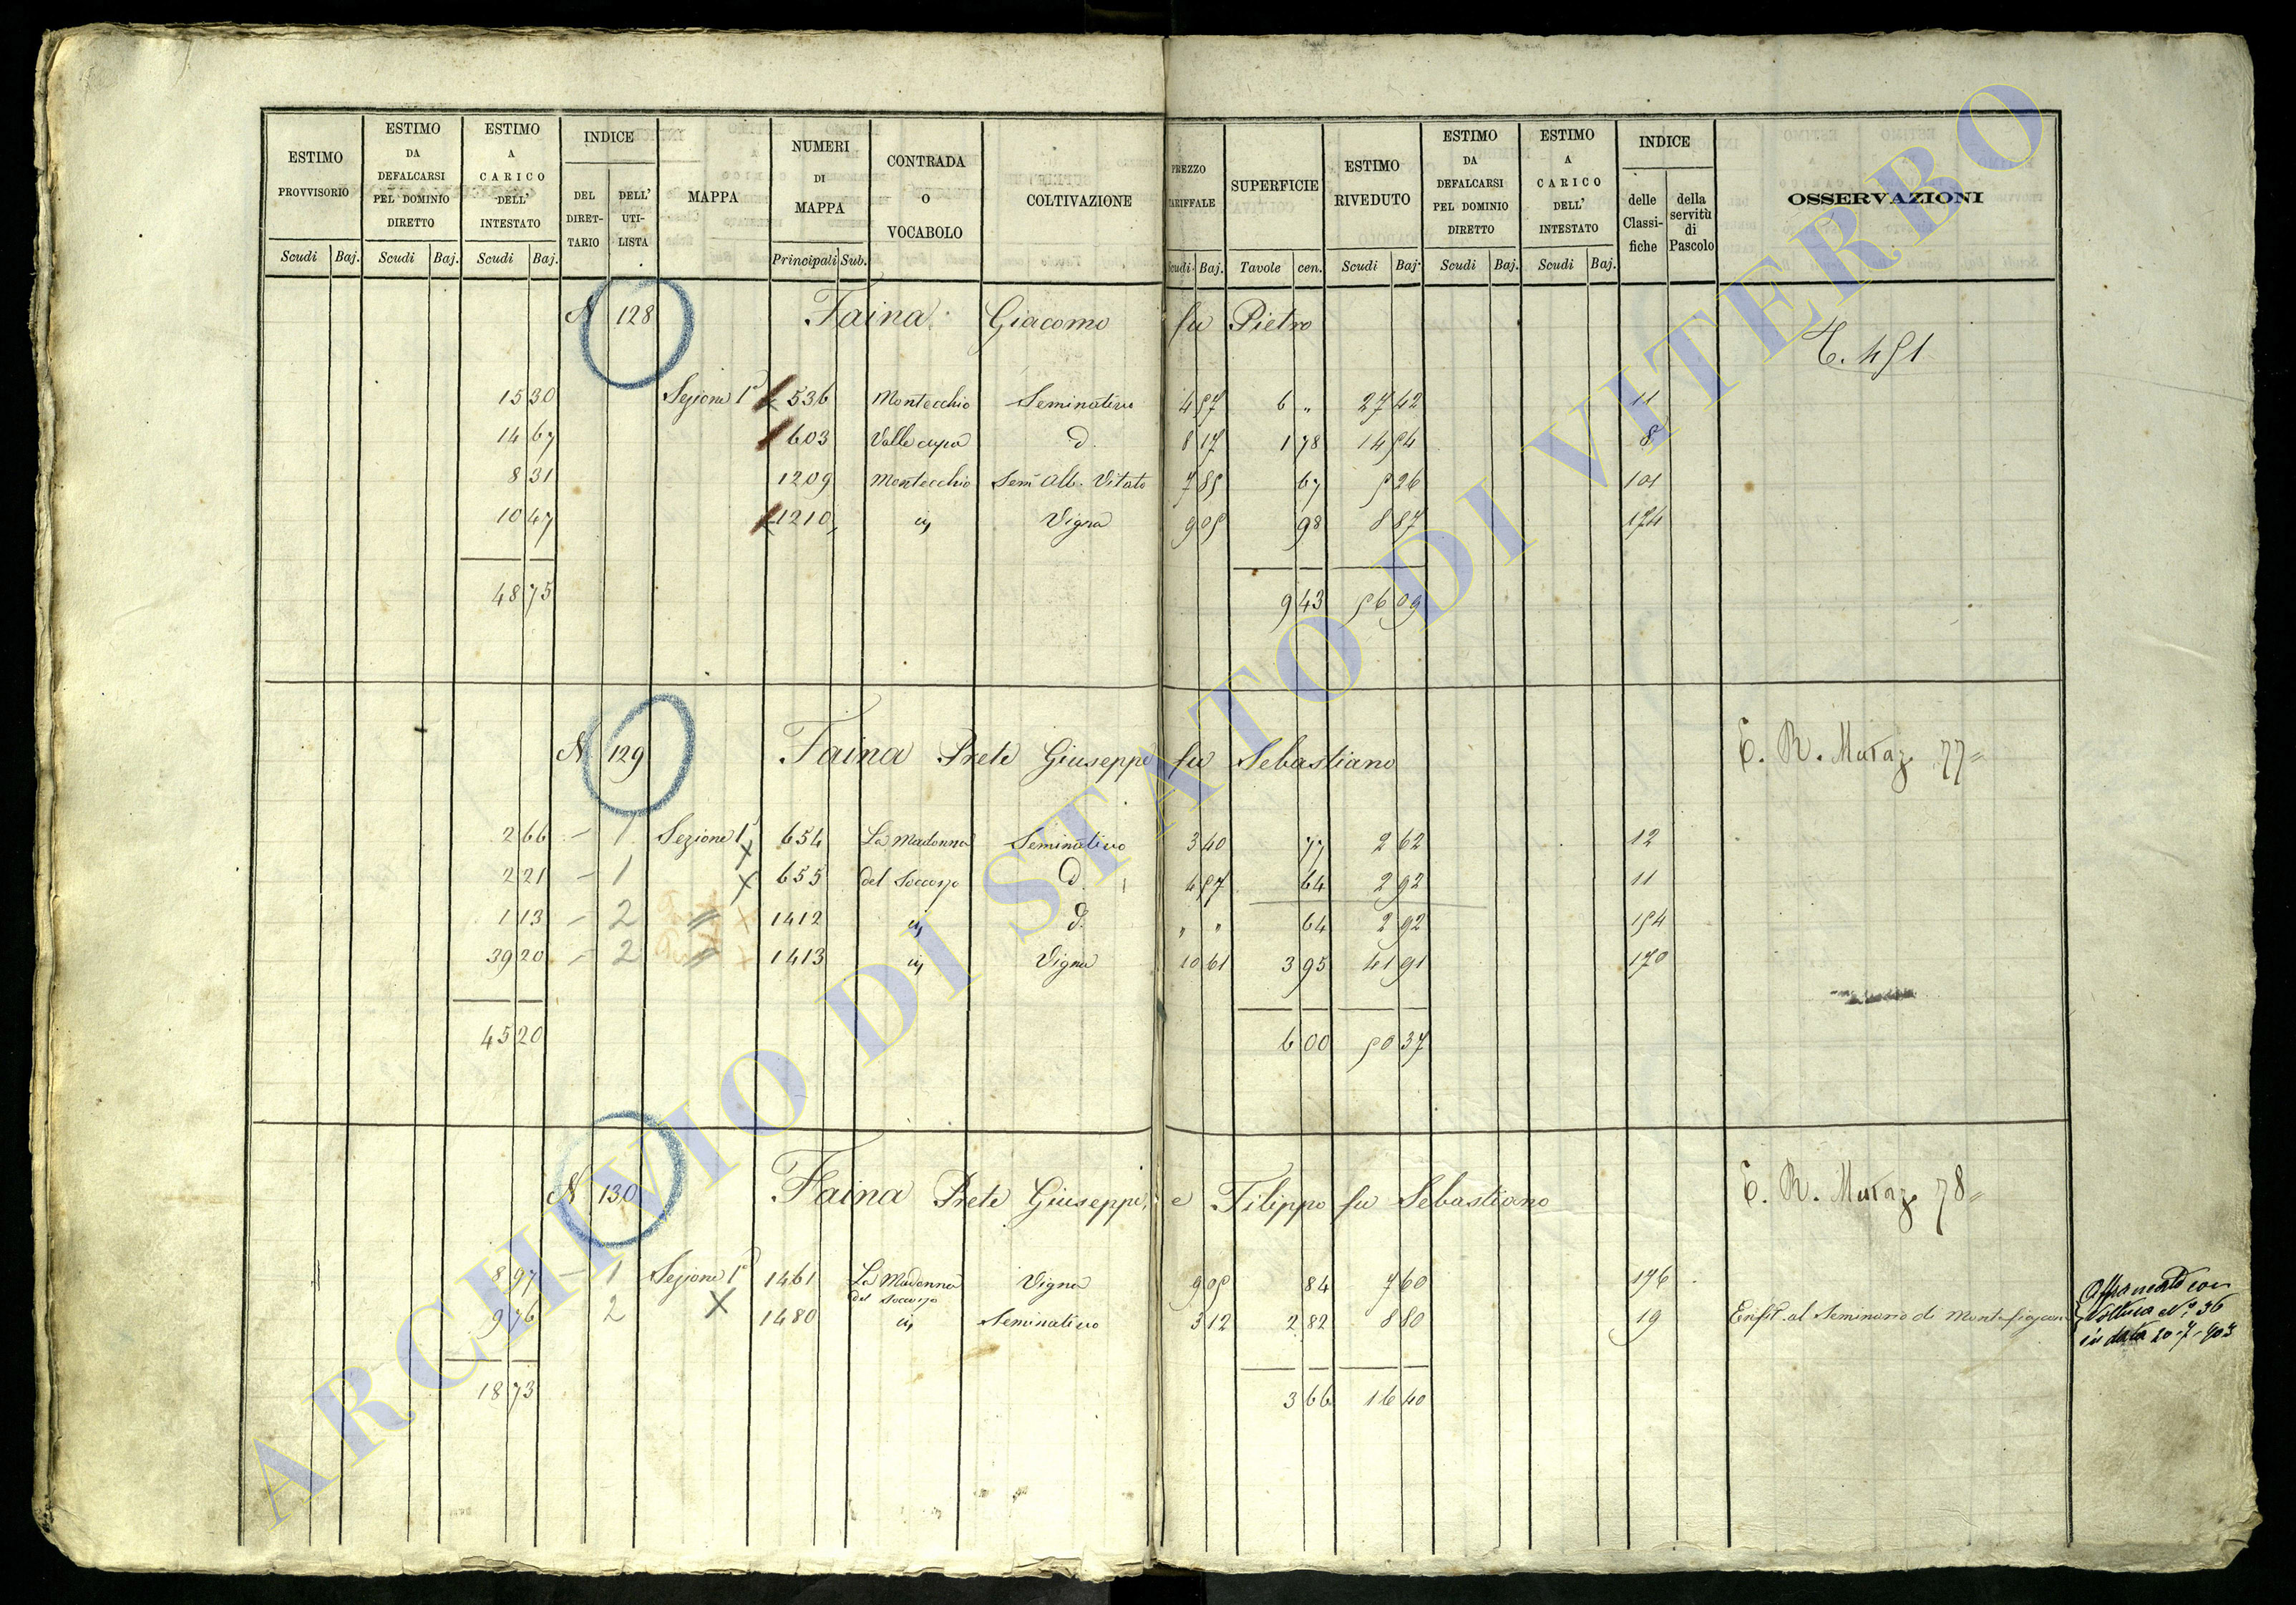 ESTIMO PROVVISORIO | ESTIMO DA DEFALCARSI PEL DOMINIO DIRETTO | ESTIMO A CARICO DELL' INTESTATO | INDICE DEL DIRETTARIO | DELL' UTILISTA | MAPPA | NUMERI DI MAPPA | CONTRADA O VOCABOLO | COLTIVAZIONE | PREZZO TARIFFALE | SUPERFICIE | ESTIMO RIVEDUTO | ESTIMO DA DEFALCARSI PEL DOMINIO DIRETTO | ESTIMO A CARICO DELL' INTESTATO | INDICE delle Classifiche | della servitù di Pascolo | OSSERVAZIONI
Scudi Baj. Scudi Baj. Scudi Baj. Principali Sub. Scudi Baj. Tavole cen. Scudi Baj. Scudi Baj. Scudi Baj.
N 128 Faina Giacomo fu Pietro
15 30 Sezione 1ª 536 Montecchio Seminativo 4 57 6 " 27 42 11
14 67 603 Valle cupa d. 8 17 1 78 14 54 8
8 31 1209 Montecchio Sem Alb. Vitato 7 85 67 5 26 101
10 47 1210 iy Vigna 9 05 98 8 87 174
48 75 9 43 56 09
N 129 Faina Prete Giuseppe fu Sebastiano E. R. Mutaz. 77=
2 66 - 1 Sezione 1ª 654 La Madonna Seminativo 3 40 77 2 62 12
2 21 - 1 X 655 del Soccorso d. 4 57 64 2 92 11
1 13 - 2 " 1412 iy d. " " 64 2 92 154
39 20 - 2 " 1413 iy Vigna 10 61 3 95 41 91 170
45 20 6 00 50 37
N 130 Faina Prete Giuseppe, e Filippo fu Sebastiano E. R. Mutaz. 78=
8 97 - 1 Sezione 1ª 1461 La Madonna del Soccorso Vigna 9 05 84 7 60 176
9 76 2 X 1480 iy Seminativo 3 12 2 82 8 80 19 Enfit. al Seminario di Montefiascone
Affrancato con
Voltura N.º 36
in data 20-7-903
18 73 3 66 16 40
ARCHIVIO DI STATO DI VITERBO